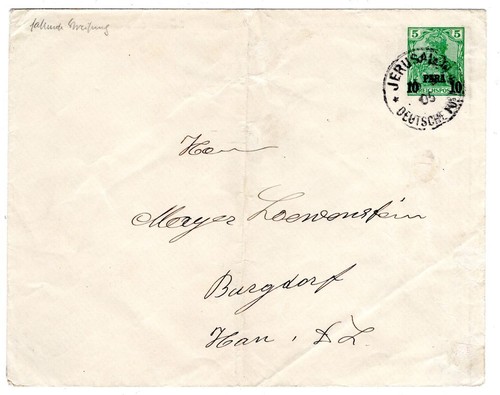 5 5
10 PARA 10
REICHSPOST
JERUSALEM
05
DEUTSCHE POST
Herrn
Mayer Loewenstein
Burgdorf
Han. D L.